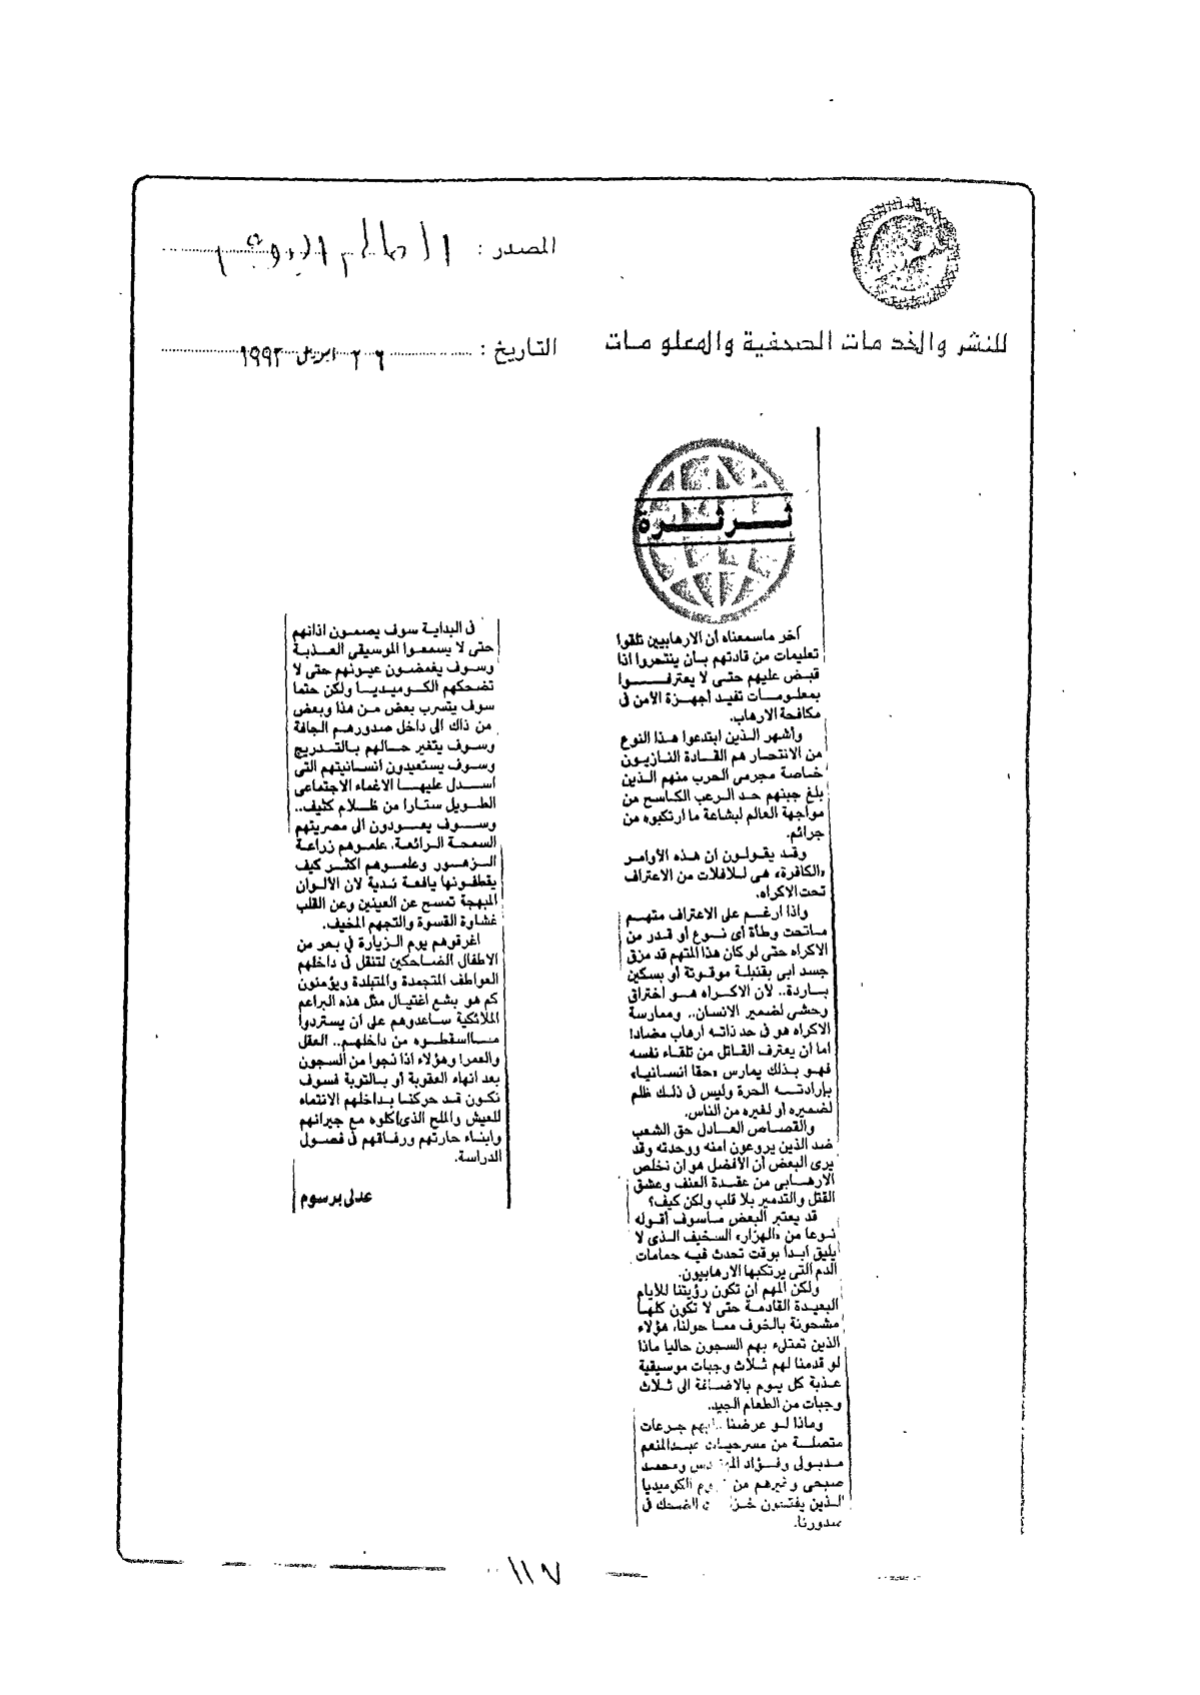 المصدر : العالم اليوم
للنشر والخدمات الصحفية والمعلومات
التاريخ : ٢٦ ابريل ١٩٩٣
ثرثرة
آخر ماسمعناه أن الارهابيين تلقوا
تعليمات من قادتهم بأن ينتحروا اذا
قبض عليهم حتى لا يعترفوا
بمعلومات تفيد أجهزة الأمن فى
مكافحة الارهاب.
وأشهر الذين ابتدعوا هذا النوع
من الانتحار هم القادة النازيون
خاصة مجرمى الحرب منهم الذين
بلغ جبنهم حد الرعب الكاسح من
مواجهة العالم لبشاعة ما ارتكبوه من
جرائم.
وقد يقولون أن هذه الأوامر
«الكافرة» هى للافلات من الاعتراف
تحت الاكراه.
واذا ارغم على الاعتراف متهم
ماتحت وطأة أى نوع أو قدر من
الاكراه حتى لو كان هذا المتهم قد مزق
جسد أبى بقنبلة موقوتة أو بسكين
باردة.. لأن الاكراه هو اختراق
وحشى لضمير الانسان.. وممارسة
الاكراه هو فى حد ذاته ارهاب مضاد!
اما أن يعترف القاتل من تلقاء نفسه
فهو بذلك يمارس «حقا انسانيا»
بإرادته الحرة وليس فى ذلك ظلم
لضميره أو لغيره من الناس.
والقصاص العادل حق الشعب
ضد الذين يروعون امنه ووحدته وقد
يرى البعض أن الأفضل هو ان نخلص
الارهابى من عقدة العنف وعشق
القتل والتدمير بلا قلب ولكن كيف؟
قد يعتبر البعض ماسوف أقوله
نوعا من «الهزار» السخيف الذى لا
يليق ابدا بوقت تحدث فيه حمامات
الدم التى يرتكبها الارهابيون.
ولكن المهم ان تكون رؤيتنا للأيام
البعيدة القادمة حتى لا تكون كلها
مشحونة بالخوف مما حولنا، هؤلاء
الذين تمتلىء بهم السجون حاليا ماذا
لو قدمنا لهم ثلاث وجبات موسيقية
عذبة كل يوم بالاضافة الى ثلاث
وجبات من الطعام الجيد.
وماذا لو عرضنا جرعات
متصلة من مسرحيات عبدالمنعم
مدبولى وفؤاد المهندس ومحمد
صبحى وغيرهم من الكوميديا
الذين الضحك فى
صدورنا.
فى البداية سوف يصمون اذانهم
حتى لا يسمعوا الموسيقى العذبة
وسوف يغمضون عيونهم حتى لا
تضحكهم الكوميديا ولكن حتما
سوف يتسرب بعض من هذا وبعض
من ذاك الى داخل صدورهم الجافة
وسوف يتغير حالهم بالتدريج
وسوف يستعيدون انسانيتهم التى
اسدل عليها الاغماء الاجتماعى
الطويل ستارا من ظلام كثيف..
وسوف يعودون الى مصريتهم
السمحة الرائعة، علموهم زراعة
الزهور وعلموهم اكثر كيف
يقطفونها يافعة ندية لان الألوان
المبهجة تمسح عن العينين وعن القلب
غشاوة القسوة والتجهم المخيف.
اغرقوهم يوم الزيارة فى بحر من
الاطفال الضاحكين لتنقل فى داخلهم
العواطف المتجمدة والمتبلدة ويؤمنون
كم هو بشع اغتيال مثل هذه البراعم
الملائكية ساعدوهم على أن يستردوا
مااسقطوه من داخلهم.. العقل
والعمر! وهؤلاء اذا نجوا من السجون
بعد انهاء العقوبة أو بالتوبة فسوف
نكون قد حركنا بداخلهم الانتماء
للعيش والملح الذى اكلوه مع جيرانهم
وابناء حارتهم ورفاقهم فى فصول
الدراسة.
عدلى برسوم
١١٧